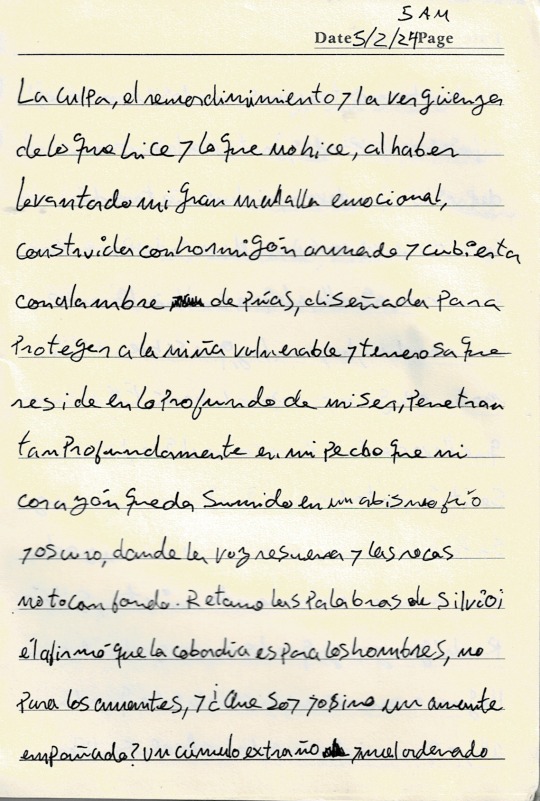 5 AM
Date 5/2/24 Page
La culpa, el remordimimiento y la vergüenza
de lo que hice y lo que no hice, al haber
levantado mi gran muralla emocional,
construida con hormigón armado y cubierta
con alambre de púas, diseñada para
proteger a la niña vulnerable y temerosa que
reside en lo profundo de mi ser, penetran
tan profundamente en mi pecho que mi
corazón queda sumido en un abismo frío
y oscuro, donde la voz resuena y las rocas
no tocan fondo. Retomo las palabras de Silvio;
él afirmó que la cobardía es para los hombres, no
para los amantes, y ¿Que soy yo sino un amante
empañado? Un cúmulo extraño y mal ordenado